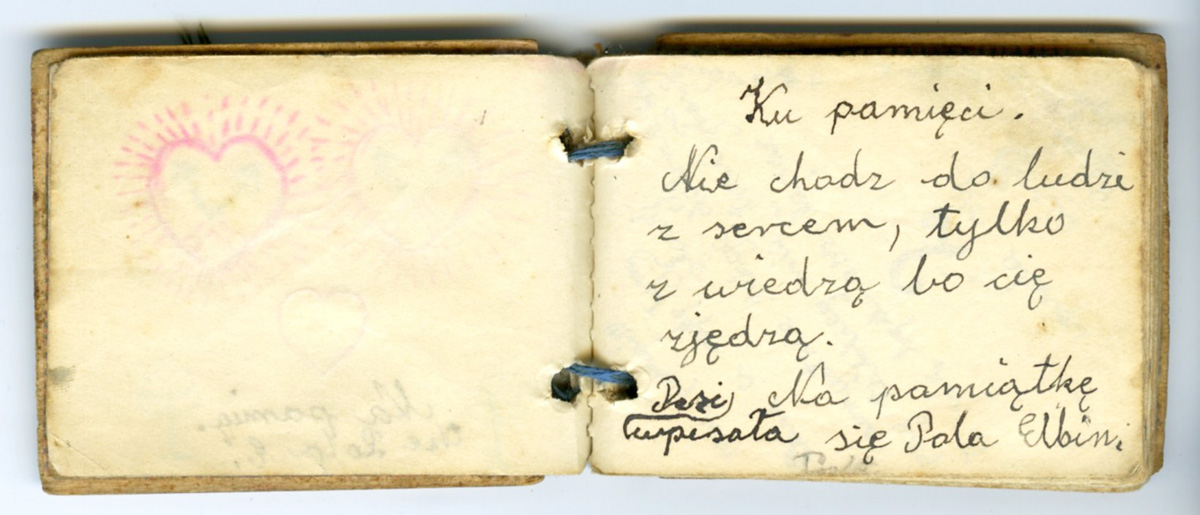 Ku pamięci.
Nie chodz do ludzi
z sercem, tylko
z wiedzą bo cię
zjędzą.
Dezi Na pamiątkę
wpisała się Pola Elbin.
Na pamią.